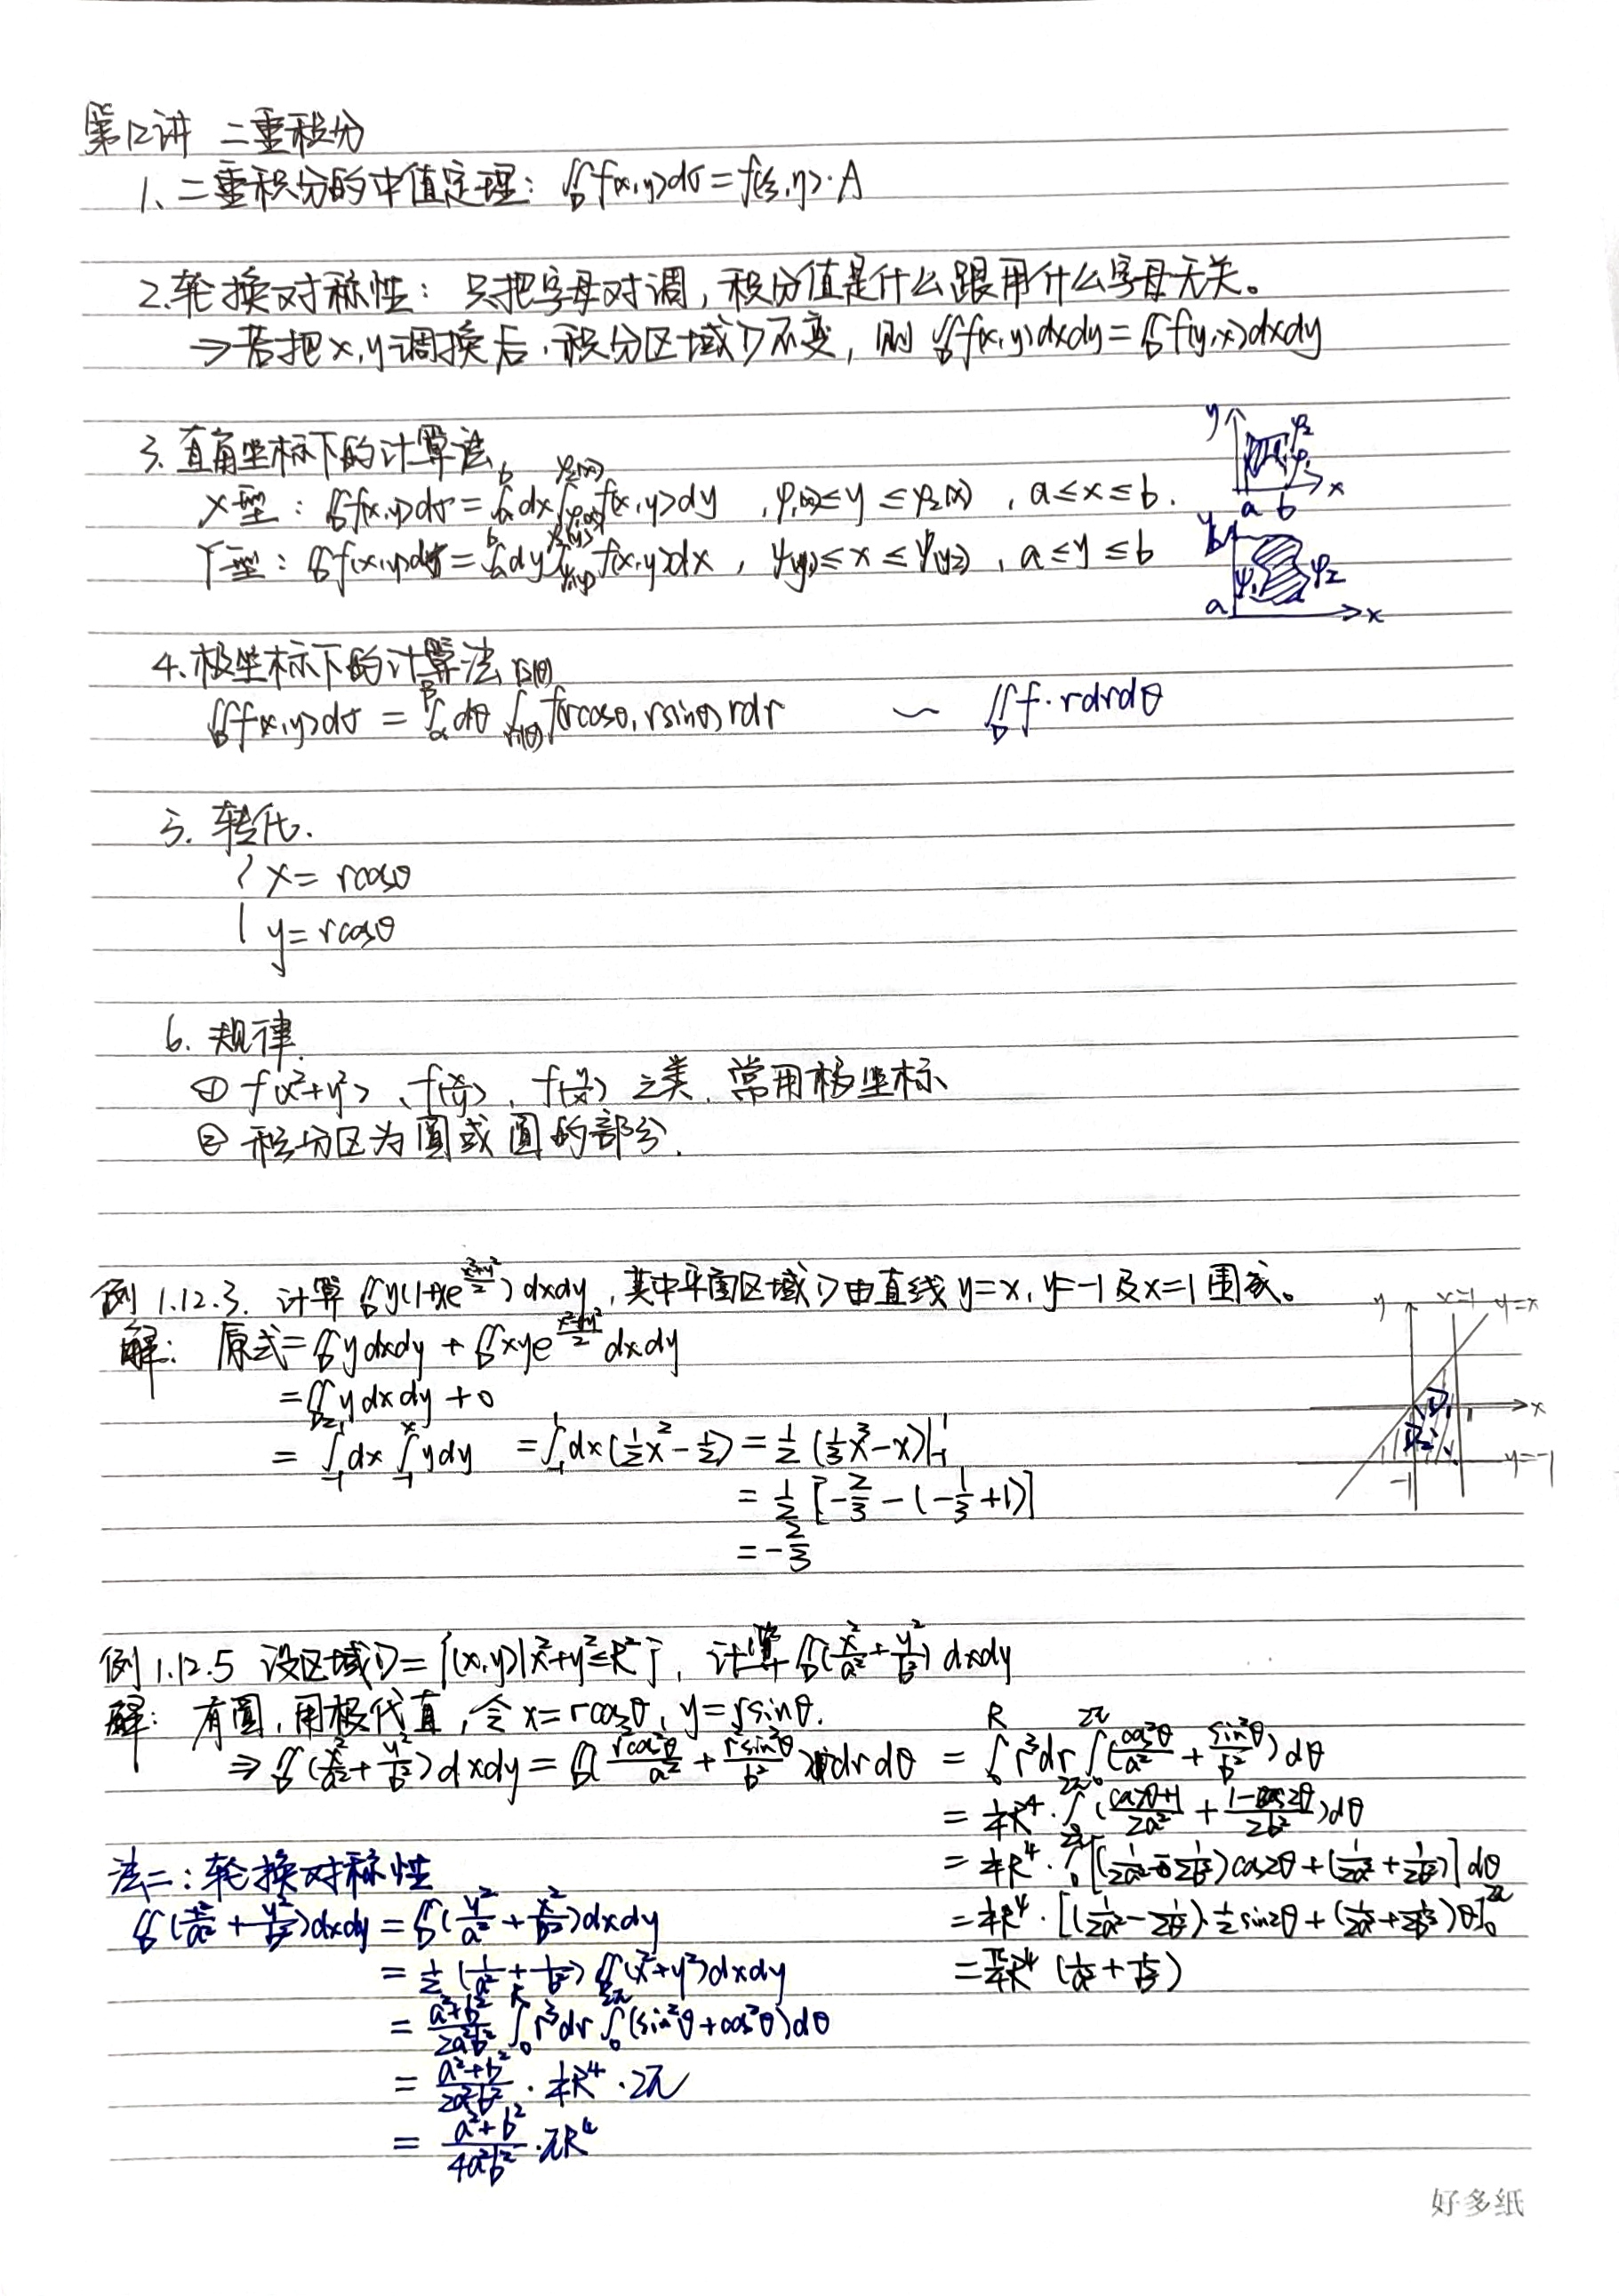 第12讲 二重积分
1、二重积分的中值定理：∬_D f(x,y)dσ=f(ξ,η)·A
2.轮换对称性：只把字母对调，积分值是什么跟用什么字母无关。
⇒若把x,y调换后，积分区域D不变，则∬_D f(x,y)dxdy=∬_D f(y,x)dxdy
3.直角坐标下的计算法
X型：∬_D f(x,y)dσ=∫_a^b dx∫_{φ₁(x)}^{φ₂(x)} f(x,y)dy ，φ₁(x)≤y≤φ₂(x)，a≤x≤b.
y φ₂ φ₁ x a b
Y型：∬_D f(x,y)dσ=∫_a^b dy∫_{ψ₁(y)}^{ψ₂(y)} f(x,y)dx，ψ(y₁)≤x≤ψ(y₂)，a≤y≤b
y b ψ₁ φ₂ a x
4、极坐标下的计算法
∬_D f(x,y)dσ=∫_α^β dθ∫_{r₁(θ)}^{r₂(θ)} f(rcosθ,rsinθ)rdr ∼ ∬_D f·rdrdθ
5. 转化.
{ x=rcosθ
y=rcosθ
6. 规律.
① f(x²+y²)、f(x/y)、f(y/x)之类，常用极坐标
② 积分区为圆或圆的部分.
例1.12.3. 计算∬_D y(1+xe^{(x²+y²)/2})dxdy，其中平面区域D由直线y=x,y=-1及x=1围成。
解：原式=∬_D ydxdy+∬_D xye^{(x²+y²)/2}dxdy
=∬_{D₂} ydxdy+0
=∫_{-1}^1 dx∫_{-1}^x ydy =∫_{-1}^1 dx(½x²-½)=½(⅓x³-x)|_{-1}^1
=½[-⅔-(-⅓+1)]
=-⅔
y x=1 y=x D₁ 1 x D₂ -1 y=-1
例1.12.5 设区域D={(x,y)|x²+y²≤R²}，计算∬_D(x²/a²+y²/b²)dxdy
解：有圆，用极代直，令x=rcosθ,y=rsinθ.
⇒∬_D(x²/a²+y²/b²)dxdy=∬_D(r²cos²θ/a²+r²sin²θ/b²)rdrdθ =∫_0^R r³dr∫_0^{2π}(cos²θ/a²+sin²θ/b²)dθ
=¼R⁴·∫_0^{2π}((cos2θ+1)/2a²+(1-cos2θ)/2b²)dθ
=¼R⁴·∫_0^{2π}[(1/2a²-1/2b²)cos2θ+(1/2a²+1/2b²)]dθ
=¼R⁴·[(1/2a²-1/2b²)·½sin2θ+(1/2a²+1/2b²)θ]_0^{2π}
=π/4R⁴(1/a²+1/b²)
法二：轮换对称性
∬_D(x²/a²+y²/b²)dxdy=∬_D(y²/a²+x²/b²)dxdy
=½(1/a²+1/b²)∬_D(x²+y²)dxdy
=(a²+b²)/2a²b²∫_0^R r³dr∫_0^{2π}(sin²θ+cos²θ)dθ
=(a²+b²)/2a²b²·¼R⁴·2π
=(a²+b²)/4a²b²·πR⁴
好多纸